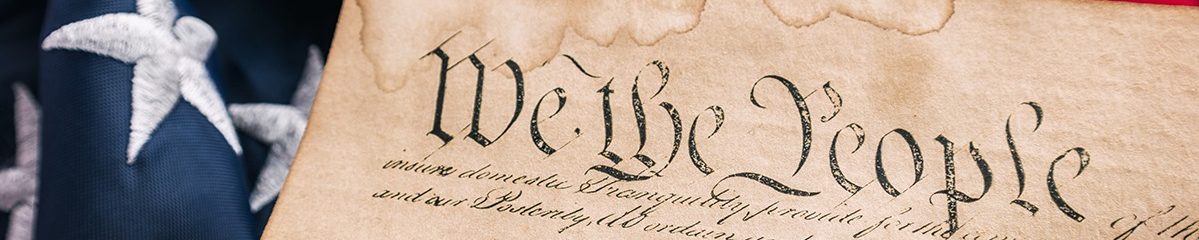 We the People of th
insure domestic Tranquility, provide for the com
and our Posterity, do ordain